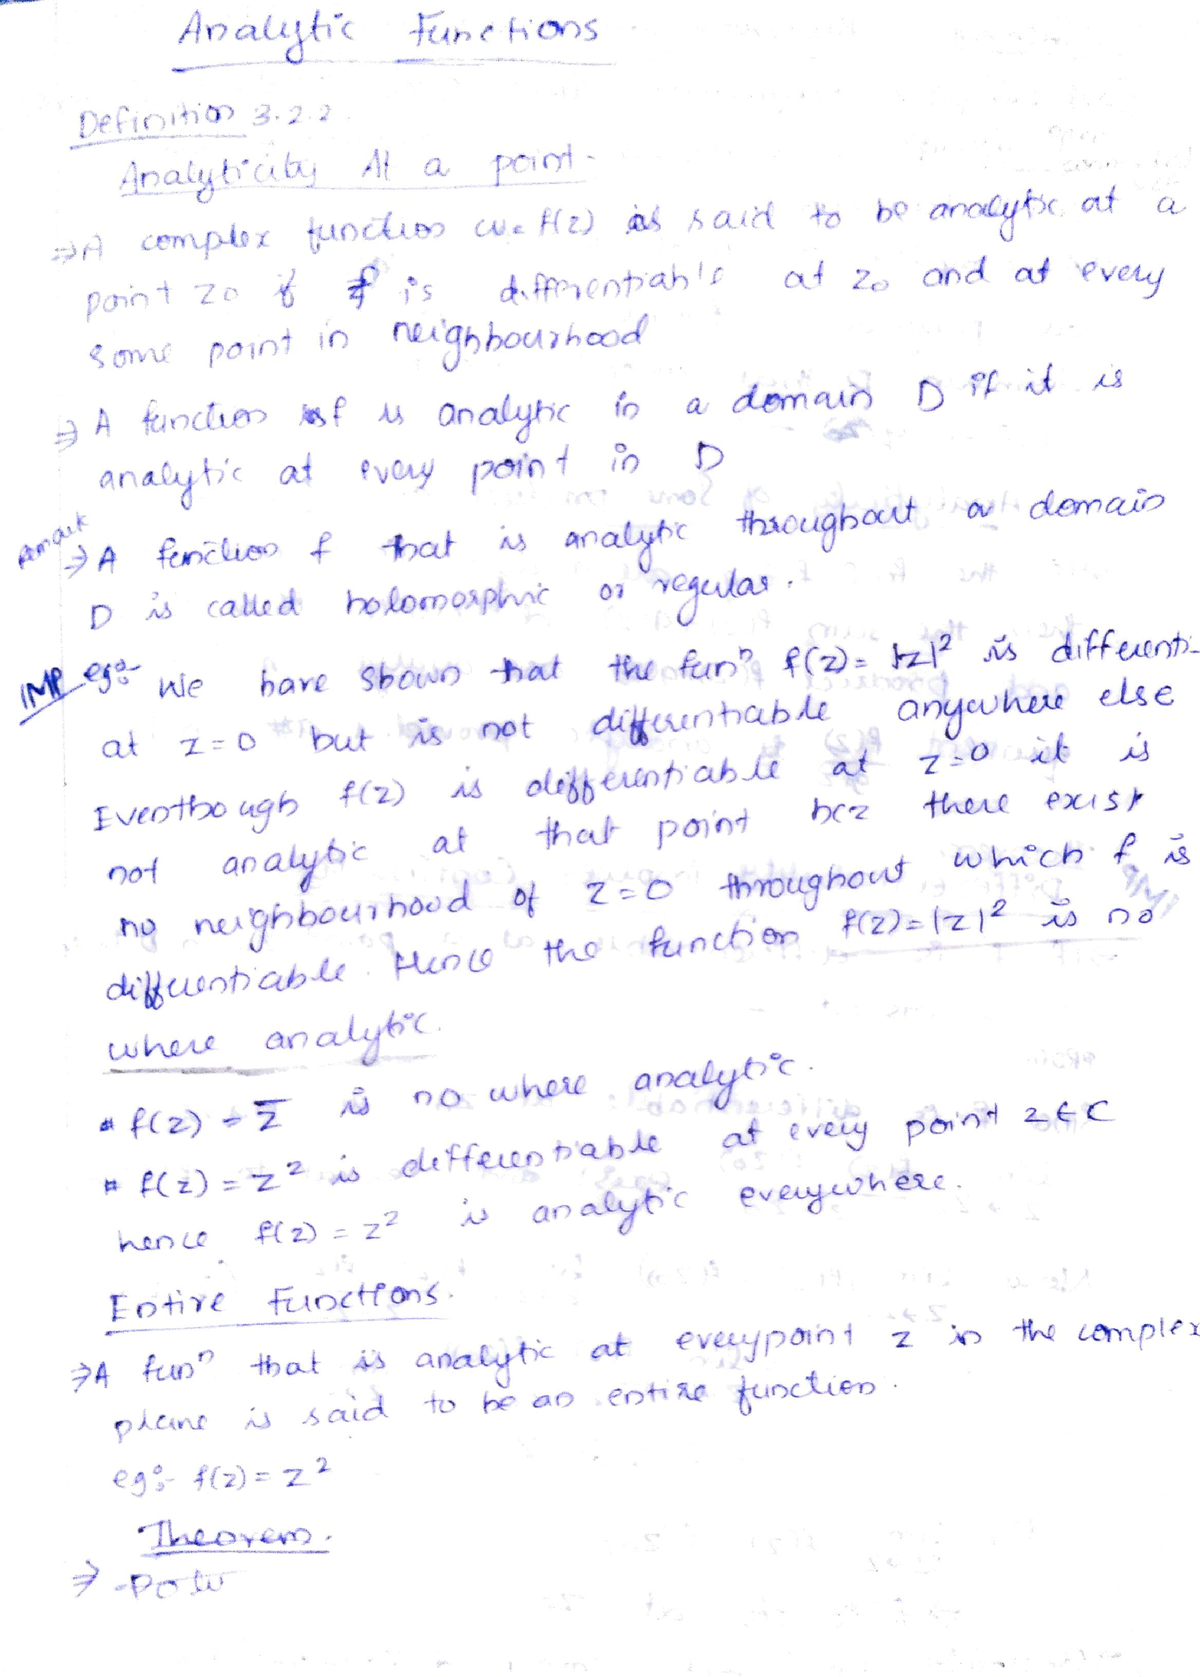 Analytic Functions
Definition 3.2.2
Analyticity At a point.
⇒ A complex function w = f(z) is said to be analytic at a
point z0 if f is differentiable at z0 and at every
some point in neighbourhood
⇒ A function f is analytic in a domain D if it is
analytic at every point in D
Remark
⇒ A function f that is analytic throughout a domain
D is called holomorphic or regular.
IMP eg:- We have shown that the funⁿ f(z) = |z|² is differenti-
at z=0 but is not differentiable anywhere else
Eventhough f(z) is differentiable at z=0 it is
not analytic at that point bcz there exist
no neighbourhood of z=0 throughout which f is
differentiable. Hence the function f(z)=|z|² is no
where analytic.
* f(z) = z̄ is no where analytic.
* f(z) = z² is differentiable at every point z ∈ C
hence f(z) = z² is analytic everywhere.
Entire Functions.
⇒ A funⁿ that is analytic at everypoint z in the complex
plane is said to be an entire function.
eg:- f(z) = z²
Theorem.
⇒ -Polu